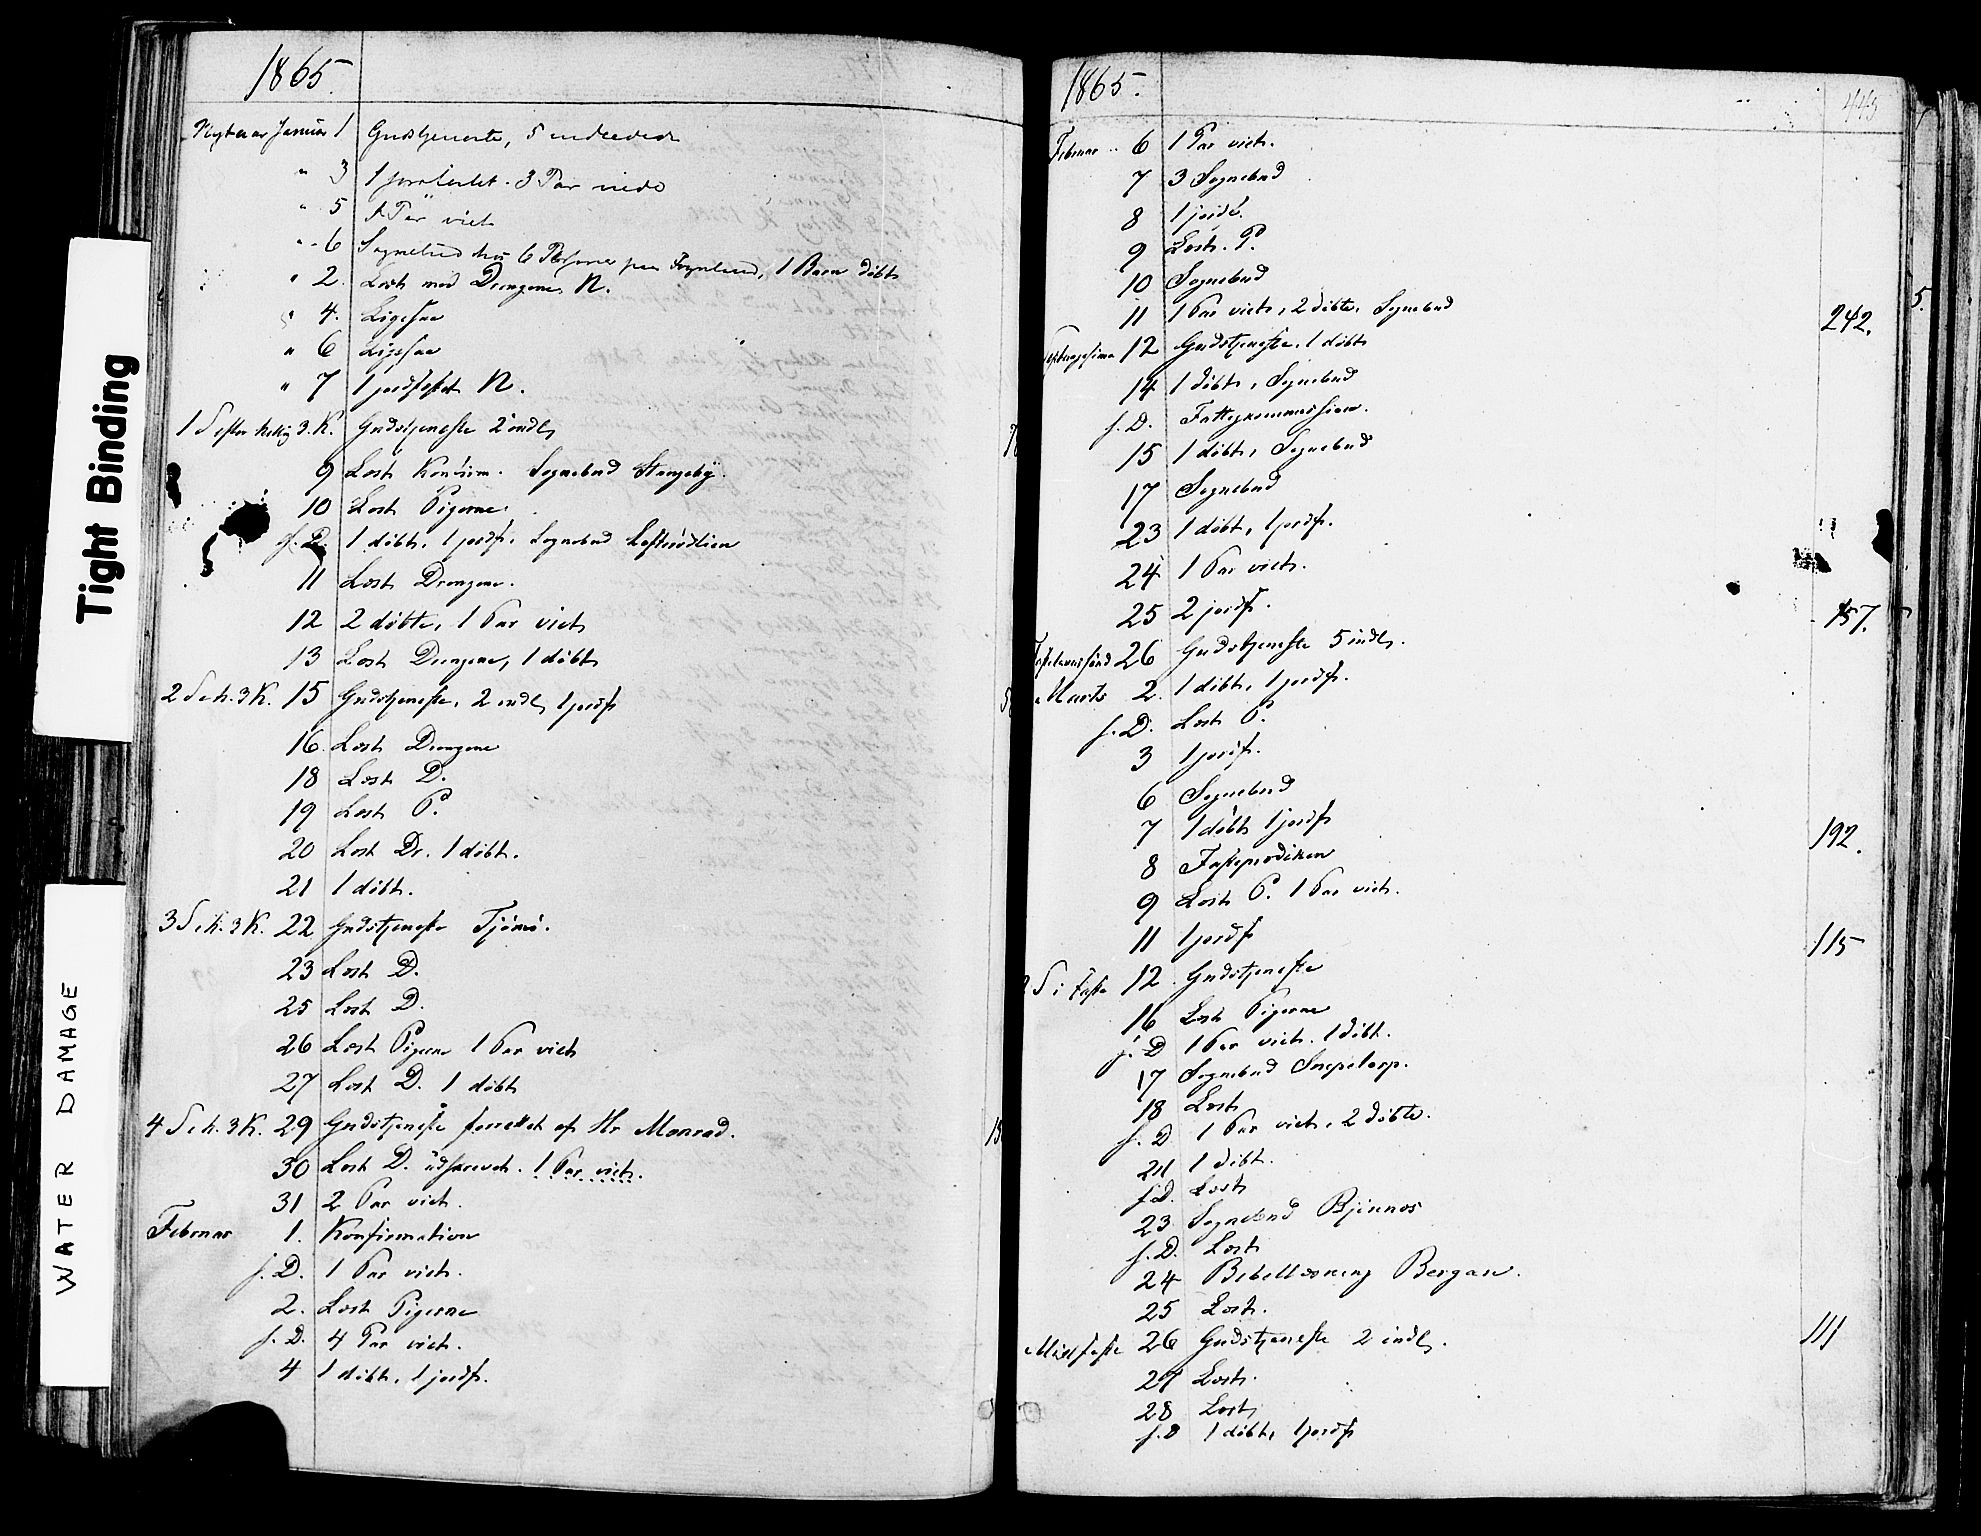 Tight Binding
WATER DAMAGE
1865.
Nytaar Januar 1 Gudstjeneste, 5
" 3 1 jordfestet. 3 Par viede
" 5 1 Par viet
" 6 Sognebud, 1 Barn døbt
" 2. Læst med Drengene N.
" 4. Ligesaa
" 6 Ligesaa
" 7 1 jordfæstet N.
1 S efter Hellig 3. K. Gudstjeneste 2 indl.
9 Læst Konfirm. Sognebud Stangeby.
10 Læst Pigerne.
s. D. 1 døbt, 1 jordf. Sognebud
11 Læst Drengene.
12 2 døbte, 1 Par viet
13 Læst Drengene, 1 døbt
2 S e h. 3 K. 15 Gudstjeneste, 2 indl, 1 jordf
16. Læst Drengene
18 Læst D.
19 Læst P.
20 Læst Dr. 1 døbt.
21 1 døbt.
3 S e h. 3 K. 22 Gudstjeneste Tjømø.
23 Læst D.
25 Læst D.
26 Læst Pigerne 1 Par viet
27 Læst D. 1 døbt
4 S e h. 3 K. 29 Gudstjeneste forrettet af Hr Monrad.
30 Læst D. udskrevet. 1 Par viet.
31 2 Par viet.
Februar 1. Konfirmation
s. D. 1 Par viet.
2. Læst Pigerne
s. D. 4 Par viet.
4 1 døbt, 1 jordf.
1865.
443
Februar 6 1 Par viet.
7 3 Sognebud
8 1 jordf.
9 Læst. P.
10 Sognebud
11 1 Par viet, 2 døbte, Sognebud
12 Gudstjeneste, 1 døbt 242.
14 1 døbt, Sognebud
s. D. Fattigkommission.
15 1 døbt, Sognebud
17 Sognebud
23 1 døbt, 1 jordf.
24 1 Par viet.
25 2 jordf.
Fastelavnssønd 26 Gudstjeneste 5 indl. 157.
Marts 2. 1 døbt, 1 jordf.
s. D. Læst P.
3 1 jordf.
6 Sognebud
7 1 døbt 1 jordf
8 Fasteprædiken 192.
9 Læst P. 1 Par viet.
11 1 jordf
2 S i Faste 12 Gudstjeneste 115
16 Læst Pigerne
s. D 1 Par viet. 1 døbt.
17 Sognebud Snepetorp.
18 Læst
s. D 1 Par viet, 2 døbte.
21 1 døbt.
s. D. Læst
23 Sognebud Bjønnes
s. D. Læst
24 Bibellæsning Bergan.
25 Læst.
Midfaste 26 Gudstjeneste 2 indl. 111
27 Læst.
28 Læst,
s. D 1 døbt, 1 jordf